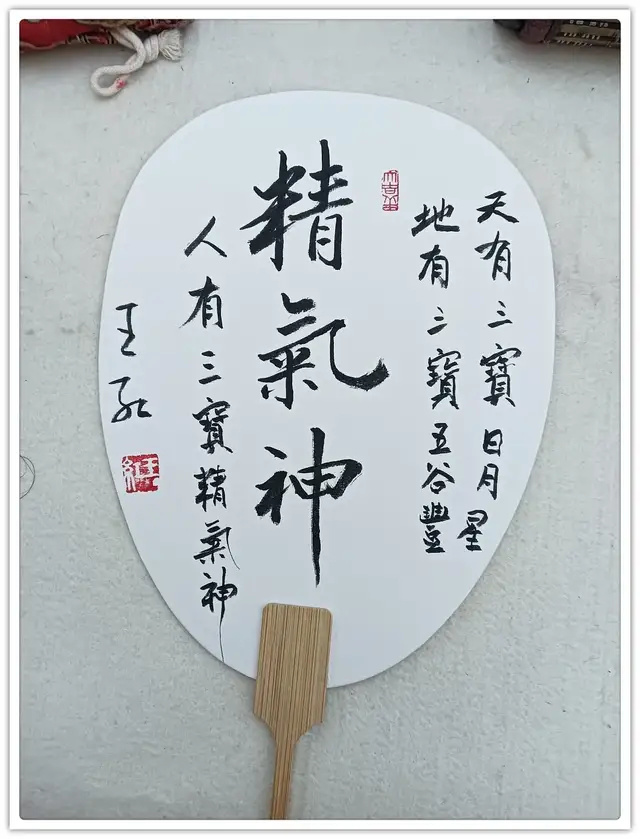 天有三寶日月星
地有三寶五谷豐
精氣神
人有三寶精氣神
王红